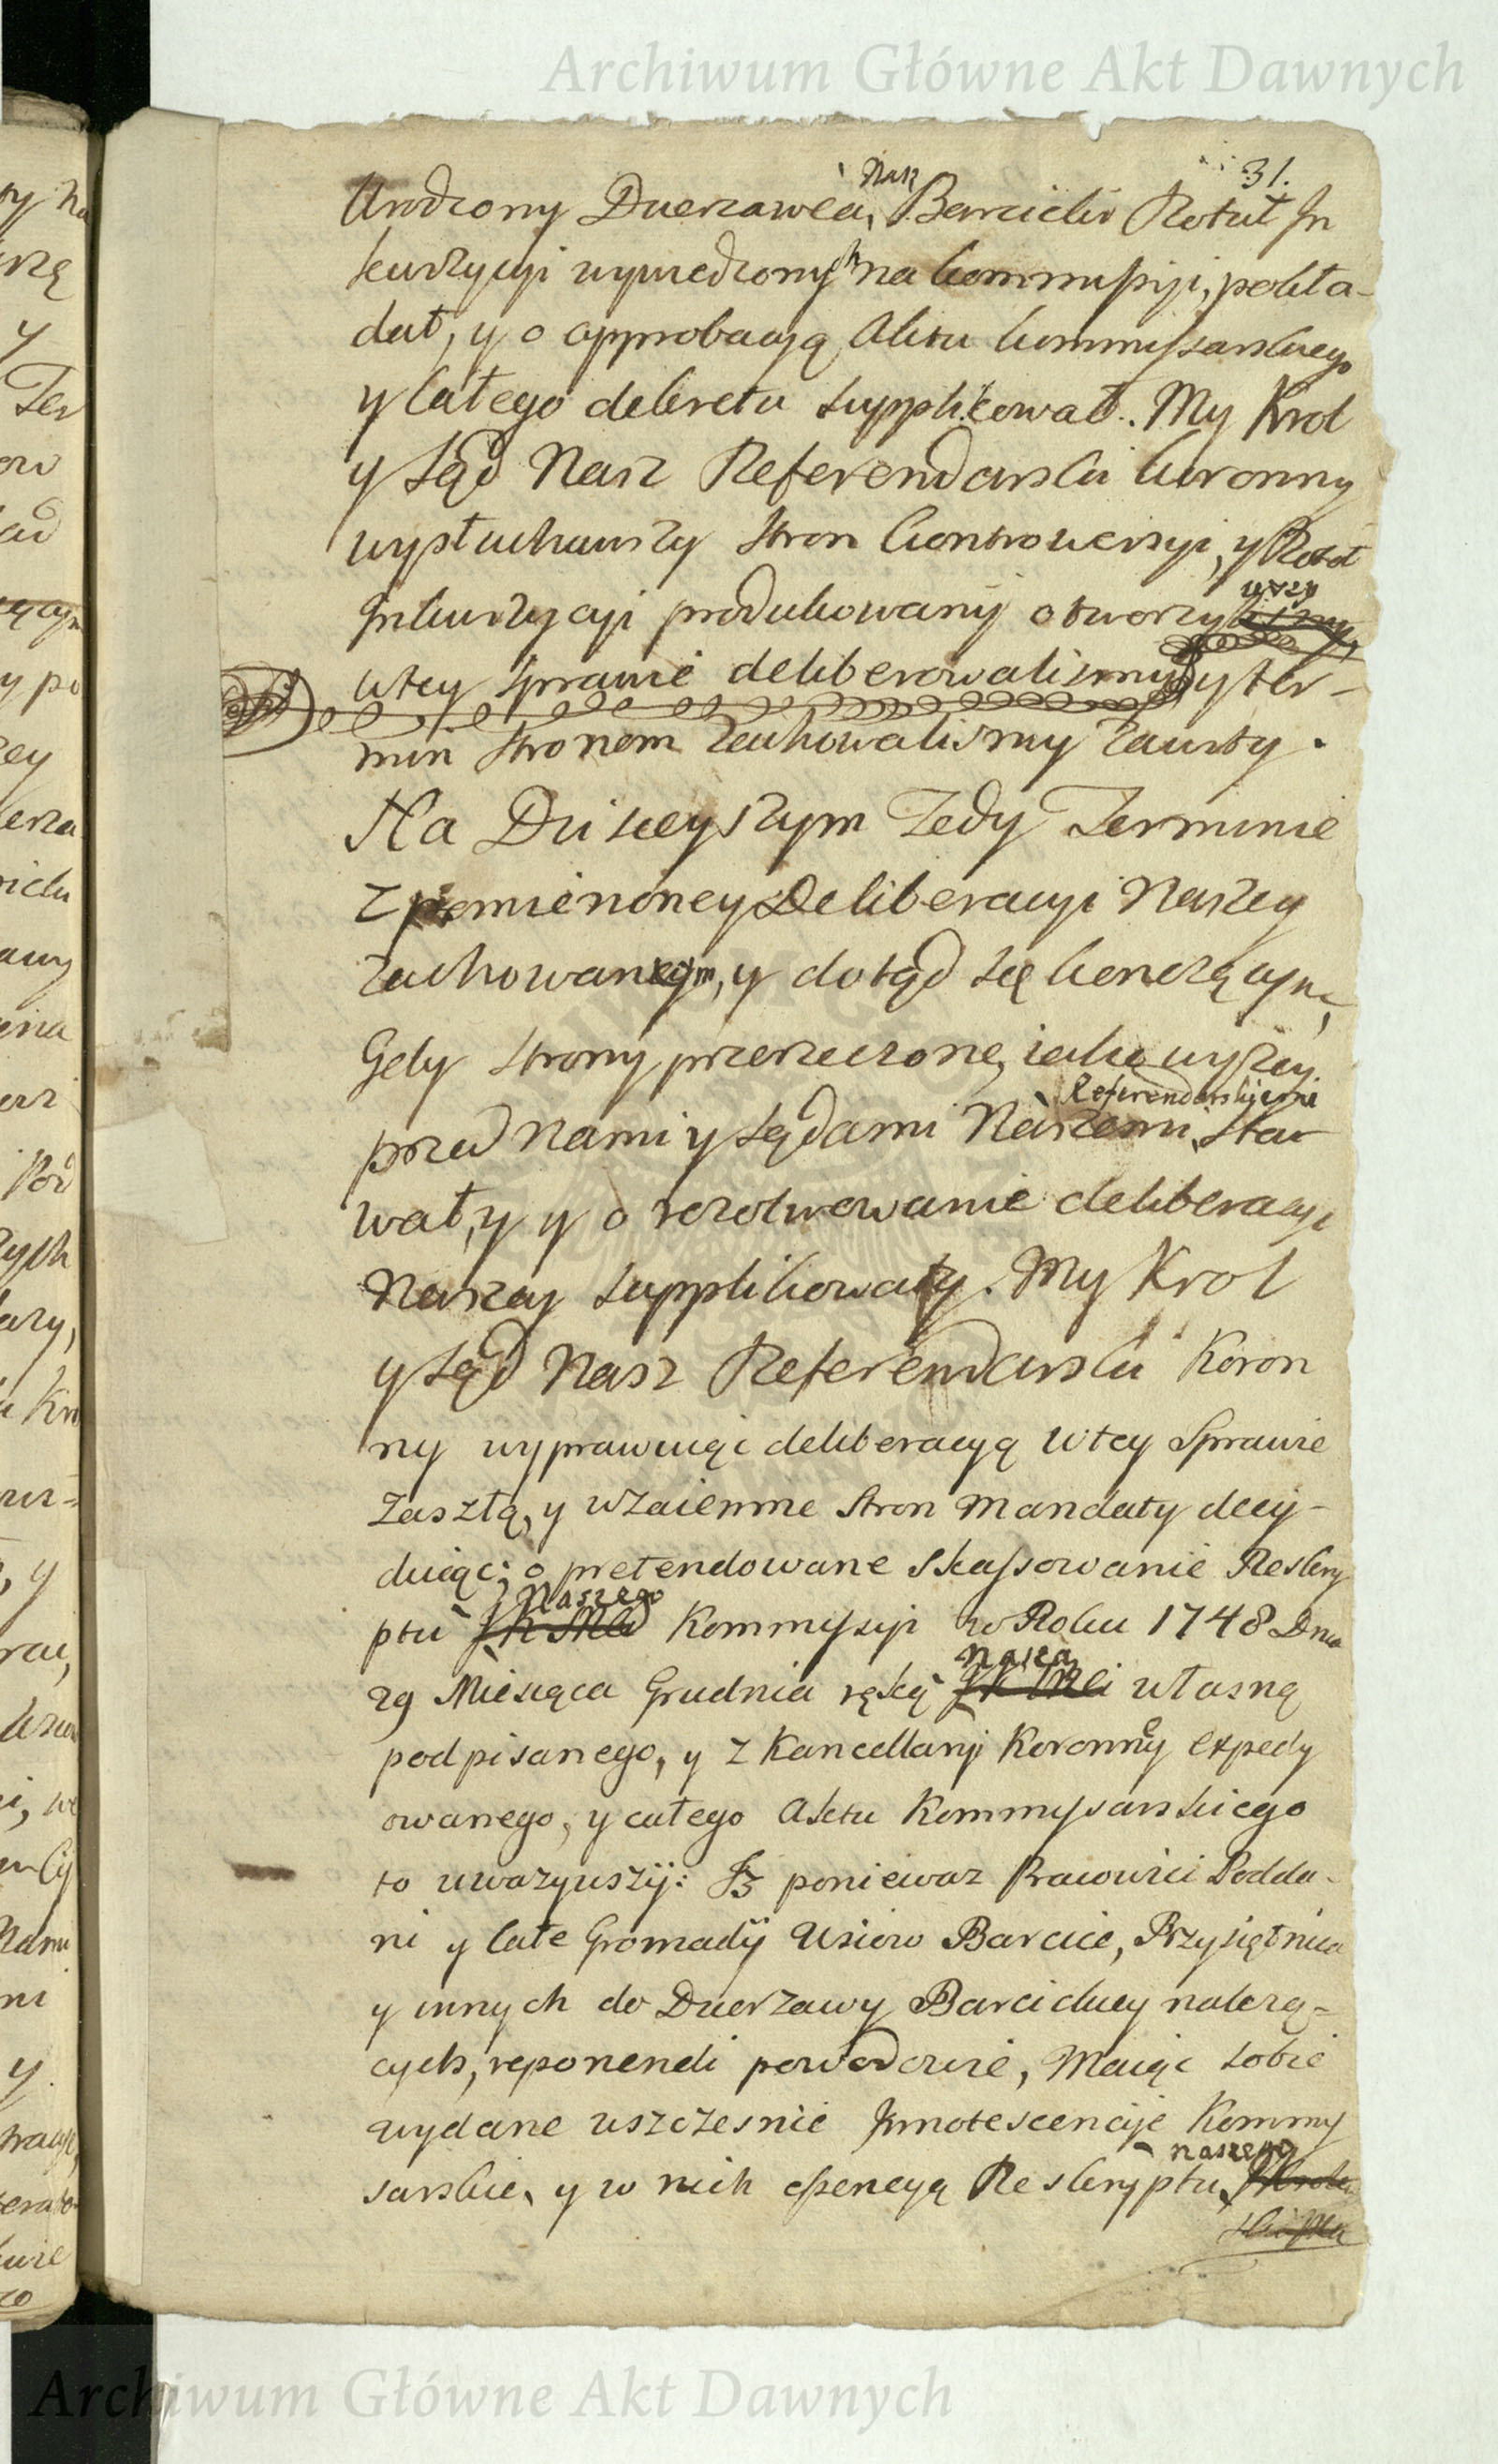 Archiwum Główne Akt Dawnych
31.
Urodzony Dzierzawca, Nasz Barcicki Rotuł In
kwizycyi wywiedziony na kommissyi, pokła-
dał, y o approbacyą Aktu kommissarskiego
y całego dekretu supplikował. My Krol
y Sąd Nasz Referendarski koronny
wysłuchawszy Stron kontrowersyi, y Rotuł
Inkwizycyi produkowany otworzywszy
w tey sprawie deliberowalismy y ter-
min Stronom zachowalismy zawity.
Na Dzisieyszym Tedy Terminie
z pomienioney Deliberacyi Naszey
zachowanym, y dotąd się kończącym,
Gdy Strony przerzeczone, iako wyszey
przed Nami y Sądami Naszemi Referendarskiemi Sta-
wały, y o rezolwowanie deliberacyi
Naszey supplikowały. My Krol
y Sąd Nasz Referendarski Koron
ny wyprawuiąc deliberacyą w tey Sprawie
zaszłą, y wzaiemne Stron Mandaty decy-
duiąc; o pretendowane skassowanie Reskry
ptu Naszego Kommyssyi w Roku 1748 Dnia
29 Miesiąca Grudnia ręką naszą własną
podpisanego, y z Kancellaryi Koronney expedy
owanego, y całego Aktu Kommyssarskiego
to uwazywszy: Iz poniewaz Pracowici Podda-
ni y całe Gromady Wsiow Barcice, Przysietnica
y innych do Dzierzawy Barcickiey nalezą-
cych, reponendi powodowie, Maiąc sobie
wydane wszczesnie Jnnotescencyje Kommy
sarskie, y w nich essencyą Reskryptu naszego
Archiwum Główne Akt Dawnych